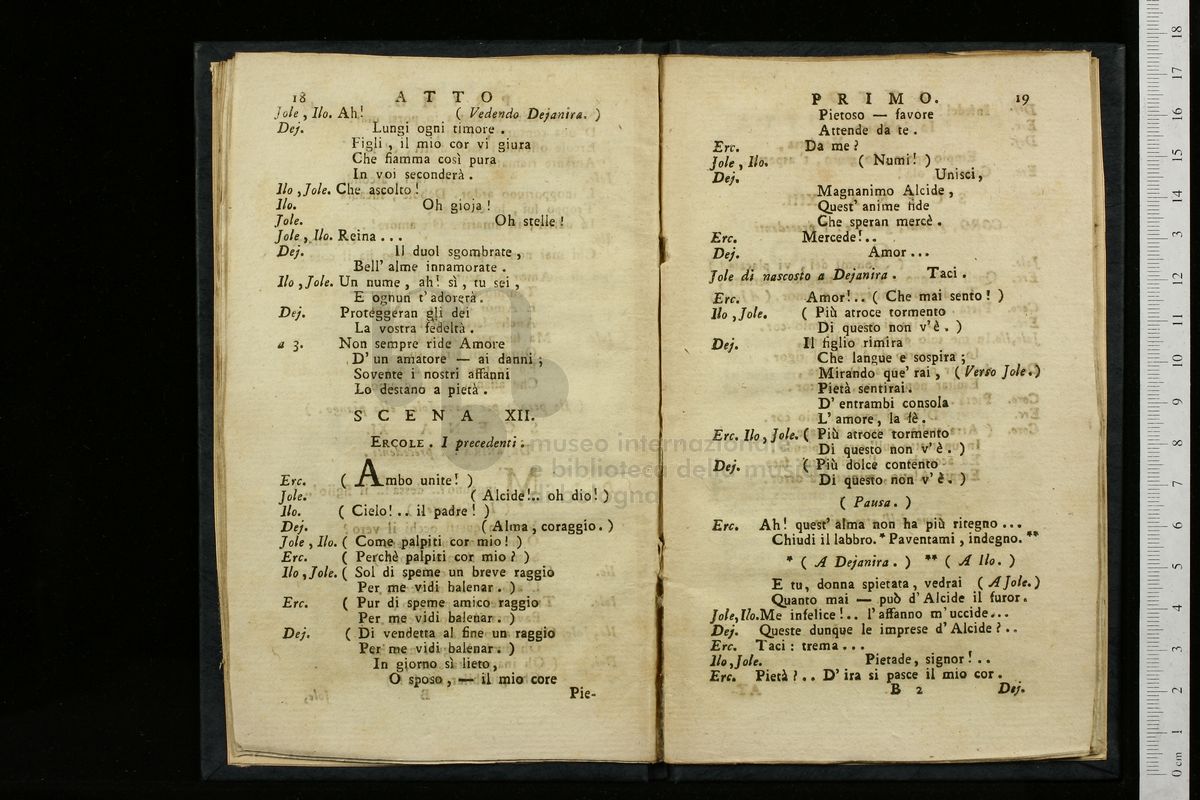 18 ATTO
Jole, Ilo. Ah! ( Vedendo Dejanira. )
Dej. Lungi ogni timore.
Figli, il mio cor vi giura
Che fiamma così pura
In voi seconderà.
Ilo, Jole. Che ascolto!
Ilo. Oh gioja!
Jole. Oh stelle!
Jole, Ilo. Reina...
Dej. Il duol sgombrate,
Bell' alme innamorate.
Ilo, Jole. Un nume, ah! sì, tu sei,
E ognun t' adorerà.
Dej. Proteggeran gli dei
La vostra fedeltà.
a 3. Non sempre ride Amore
D' un amatore — ai danni;
Sovente i nostri affanni
Lo destano a pietà.
SCENA XII.
ERCOLE. I precedenti.
Erc. ( Ambo unite! )
Jole. ( Alcide!.. oh dio! )
Ilo. ( Cielo!.. il padre! )
Dej. ( Alma, coraggio. )
Jole, Ilo. ( Come palpiti cor mio! )
Erc. ( Perchè palpiti cor mio? )
Ilo, Jole. ( Sol di speme un breve raggio
Per me vidi balenar. )
Erc. ( Pur di speme amico raggio
Per me vidi balenar. )
Dej. ( Di vendetta al fine un raggio
Per me vidi balenar. )
In giorno sì lieto,
O sposo, — il mio core
Pie-
PRIMO. 19
Pietoso — favore
Attende da te.
Erc. Da me?
Jole, Ilo. ( Numi! )
Dej. Unisci,
Magnanimo Alcide,
Quest' anime fide
Che speran mercè.
Erc. Mercede!..
Dej. Amor...
Jole di nascosto a Dejanira. Taci.
Erc. Amor!.. ( Che mai sento! )
Ilo, Jole. ( Più atroce tormento
Di questo non v' è. )
Dej. Il figlio rimira
Che langue e sospira;
Mirando que' rai, ( Verso Jole. )
Pietà sentirai.
D' entrambi consola
L' amore, la fè.
Erc. Ilo, Jole. ( Più atroce tormento
Di questo non v' è. )
Dej. ( Più dolce contento
Di questo non v' è. )
( Pausa. )
Erc. Ah! quest' alma non ha più ritegno...
Chiudi il labbro. * Paventami, indegno. **
* ( A Dejanira. ) ** ( A Ilo. )
E tu, donna spietata, vedrai ( A Jole. )
Quanto mai — può d' Alcide il furor.
Jole, Ilo. Me infelice!.. l' affanno m' uccide...
Dej. Queste dunque le imprese d' Alcide?..
Erc. Taci: trema...
Ilo, Jole. Pietade, signor!..
Erc. Pietà?.. D' ira si pasce il mio cor.
B 2 Dej.
museo internazionale
e biblioteca della musica
di bologna
0 cm 1 2 3 4 5 6 7 8 9 10 11 12 13 14 15 16 17 18